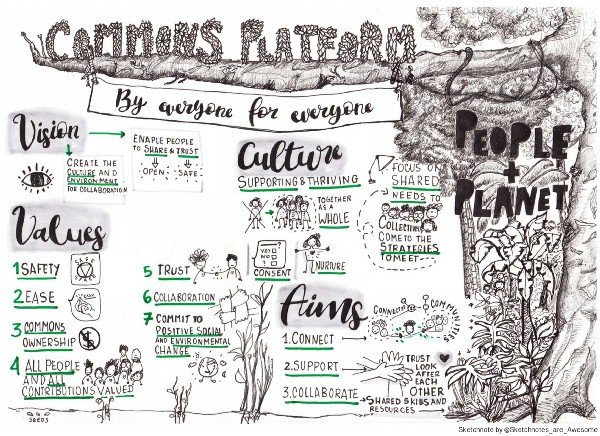 COMMONS PLATFORM
By everyone for everyone
PEOPLE
+
PLANET
Vision
CREATE THE
CULTURE AND
ENVIRONMENT
FOR COLLABORATION
ENABLE PEOPLE
TO SHARE & TRUST
OPEN
SAFE
Culture
SUPPORTING & THRIVING
TOGETHER
AS A
WHOLE
CONSENT
NURTURE
FOCUS ON
SHARED
NEEDS TO
COLLECTIVELY
COME TO THE
STRATEGIES
TO MEET
Values
1 SAFETY
SAFE
2 EASE
3 COMMONS
OWNERSHIP
4 ALL PEOPLE
AND ALL
CONTRIBUTIONS VALUED
5 TRUST
6 COLLABORATION
7 COMMIT TO
POSITIVE SOCIAL
AND ENVIRONMENTAL
CHANGE
SEEDS
Aims
1. CONNECT
CONNECTING
COMMUNITIES
2. SUPPORT
TRUST
LOOK
AFTER
EACH
OTHER
3. COLLABORATE
SHARED SKILLS AND
RESOURCES
Sketchnote by @Sketchnotes_are_Awesome